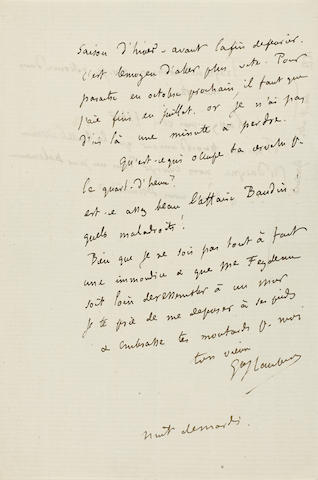 saison d'hiver - avant la fin de février.
C'est le moyen d'aller plus vite. Pour
paraître en octobre prochain, il faut que
j'aie fini en juillet. or je n'ai pas
d'ici là une minute à perdre.
Qu'est-ce qui occupe ta cervelle p.
le quart-d'heure?
est-ce assez beau l'affaire Baudin!
quels maladroits!
Bien que je ne sois pas tout à fait
une immondice & que Me Feydeau
soit loin de ressembler à un mur
je te prie de me déposer à ses pieds
& embrasse tes moutards p. moi
ton vieux
Gve Flaubert
nuit de mardi.